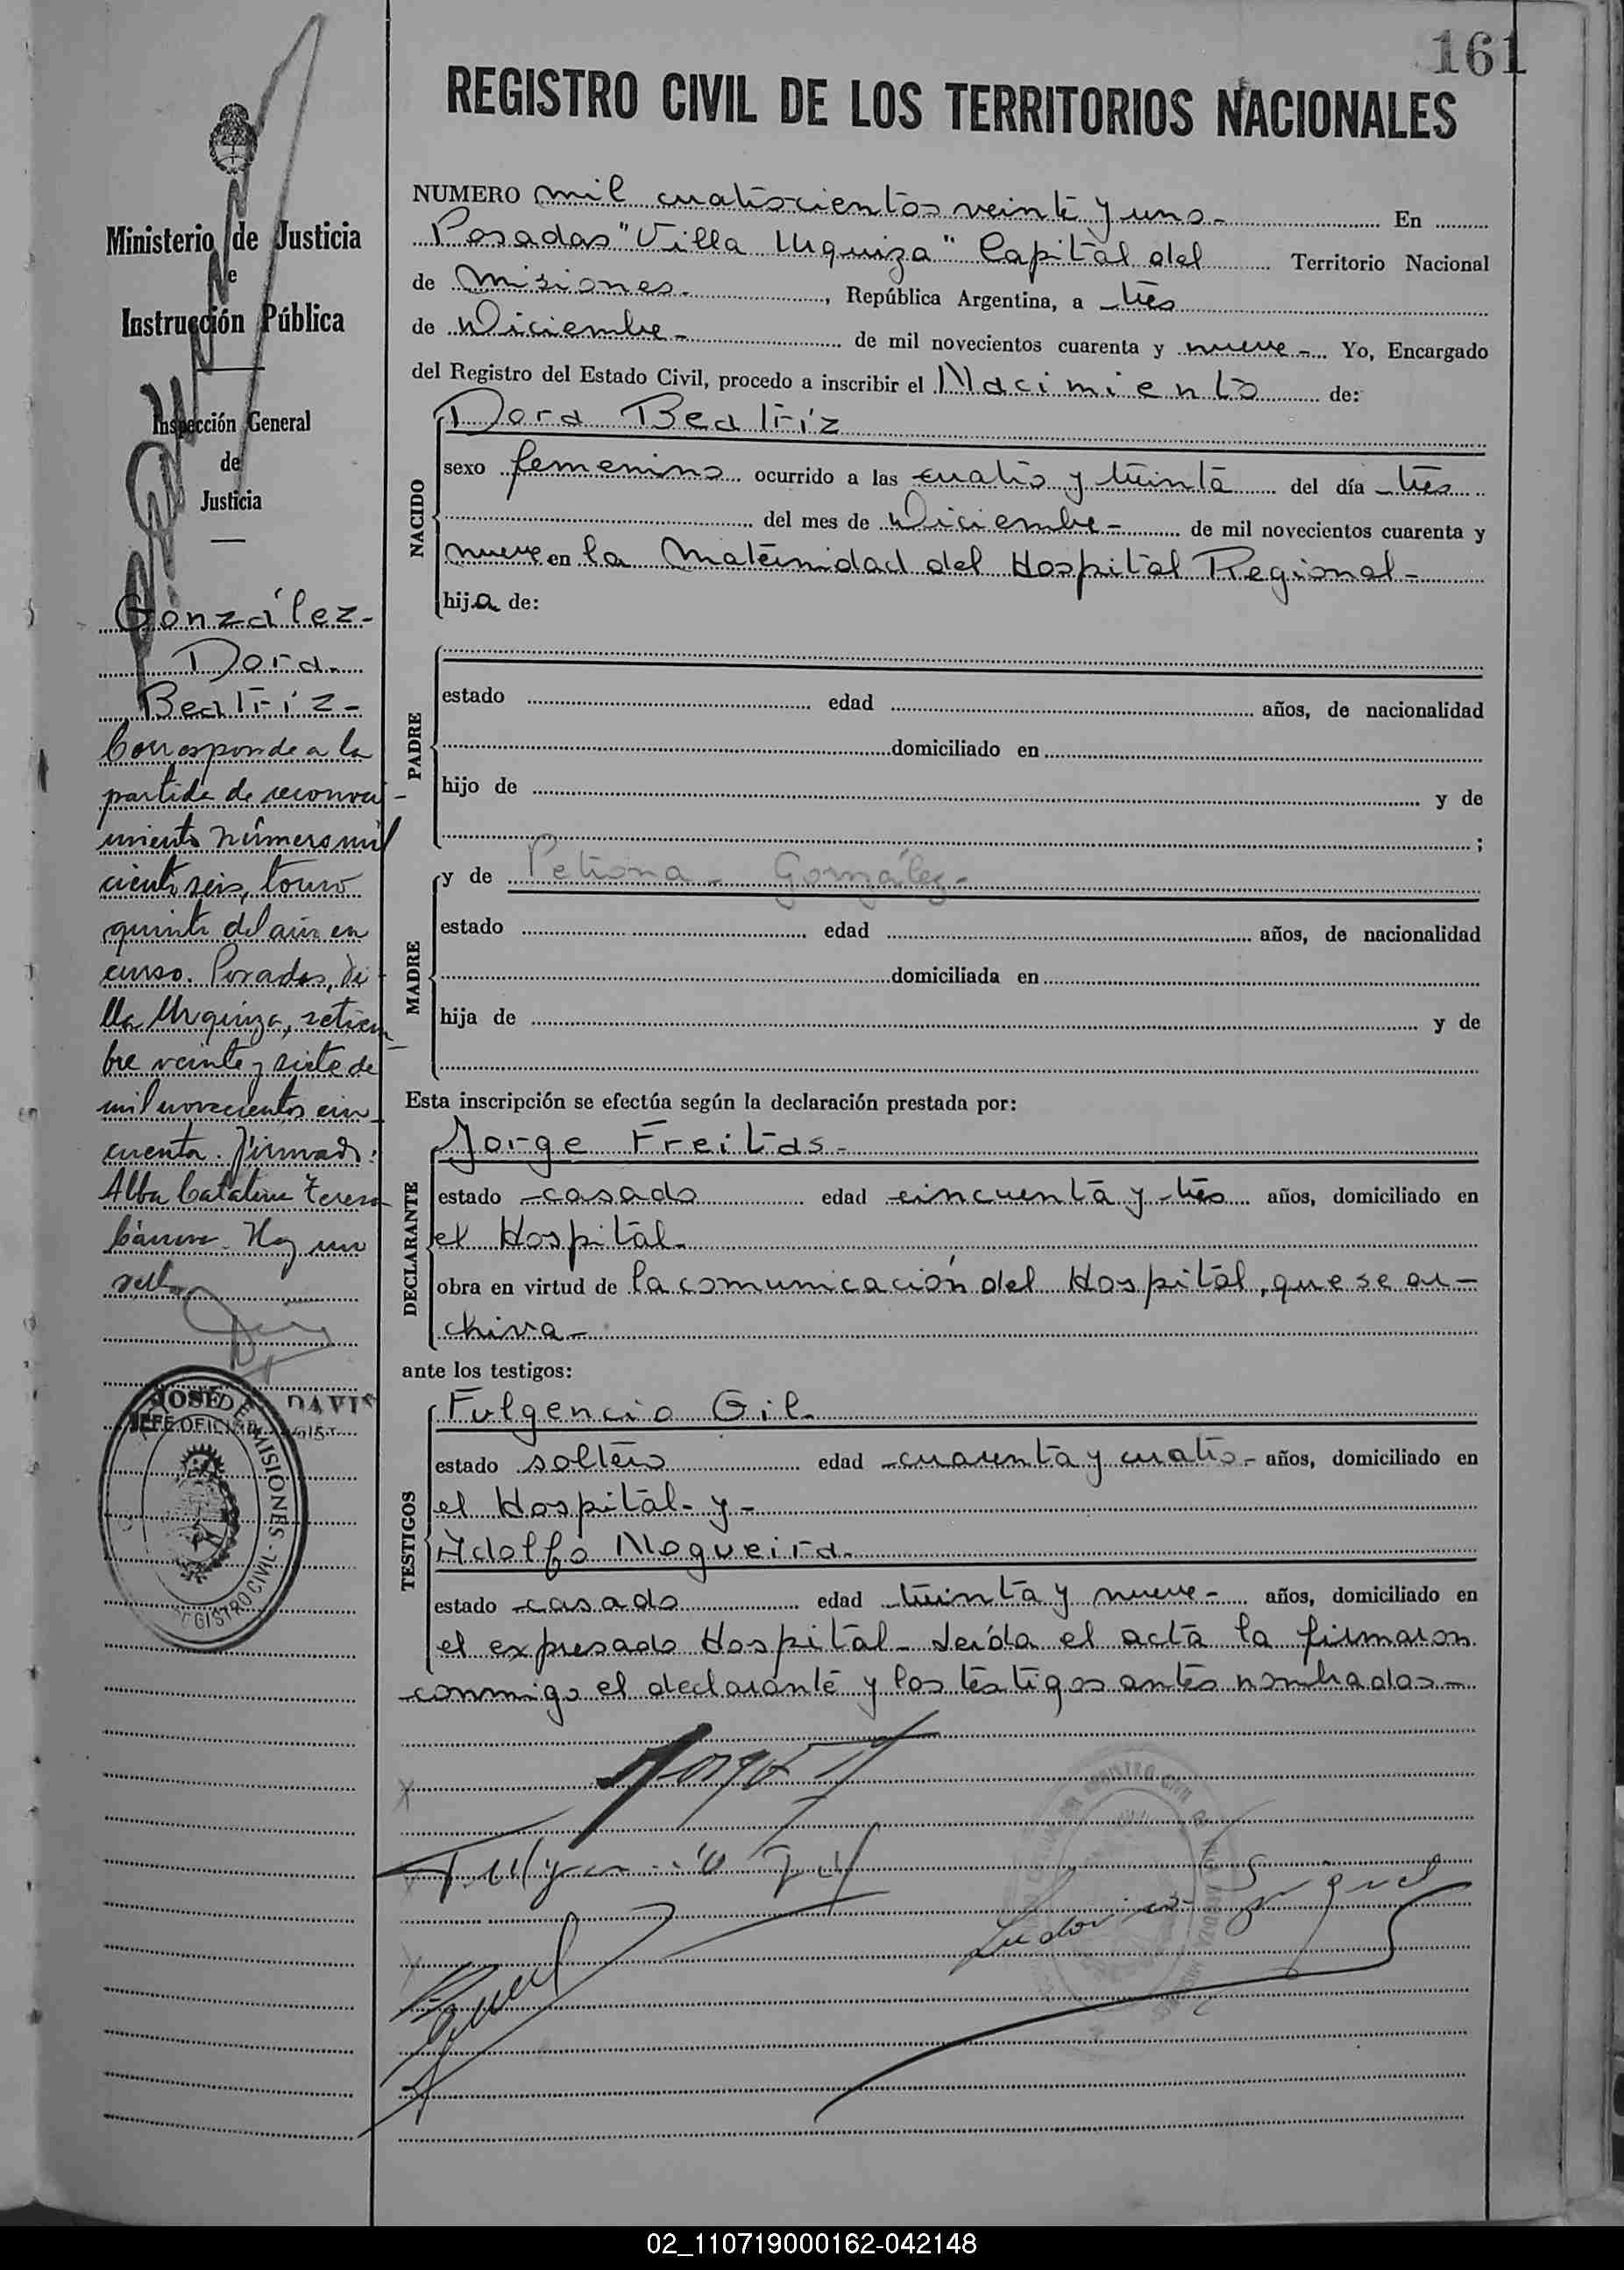 161
REGISTRO CIVIL DE LOS TERRITORIOS NACIONALES
Ministerio de Justicia
e
Instrucción Pública
Inspección General
de
Justicia
González-
Dora
Beatriz-
Corresponde a la
partida de reconoci-
miento número mil
ciento seis, tomo
quinto del año en
curso. Posadas, Vi-
lla Urquiza, setiem-
bre veinte y siete de
mil novecientos cin-
cuenta. Firmado:
Alba Catalina Teresa
Hay un
sello
JOSÉ DAVIS
JEFE OFICINA
DE MISIONES - REGISTRO CIVIL
NUMERO mil cuatrocientos veinte y uno- En
Posadas "Villa Urquiza" Capital del Territorio Nacional
de Misiones-, República Argentina, a tres
de Diciembre- de mil novecientos cuarenta y nueve-. Yo, Encargado
del Registro del Estado Civil, procedo a inscribir el Nacimiento de:
NACIDO
Dora Beatriz
sexo femenino ocurrido a las cuatro y treinta del día tres
del mes de Diciembre- de mil novecientos cuarenta y
nueve en la Maternidad del Hospital Regional-
hija de:
PADRE
estado edad años, de nacionalidad
domiciliado en
hijo de y de
;
MADRE
y de Petrona- González-
estado edad años, de nacionalidad
domiciliada en
hija de y de
Esta inscripción se efectúa según la declaración prestada por:
DECLARANTE
Jorge Freitas-
estado casado edad cincuenta y tres años, domiciliado en
el Hospital-
obra en virtud de la comunicación del Hospital, que se ar-
chiva-
ante los testigos:
TESTIGOS
Fulgencio Gil-
estado soltero edad cuarenta y cuatro- años, domiciliado en
el Hospital- y-
Adolfo Nogueira-
estado casado edad treinta y nueve- años, domiciliado en
el expresado Hospital- Leída el acta la firmaron
conmigo el declarante y los testigos antes nombrados-
Jorge F
Fulgencio Gil
02_110719000162-042148